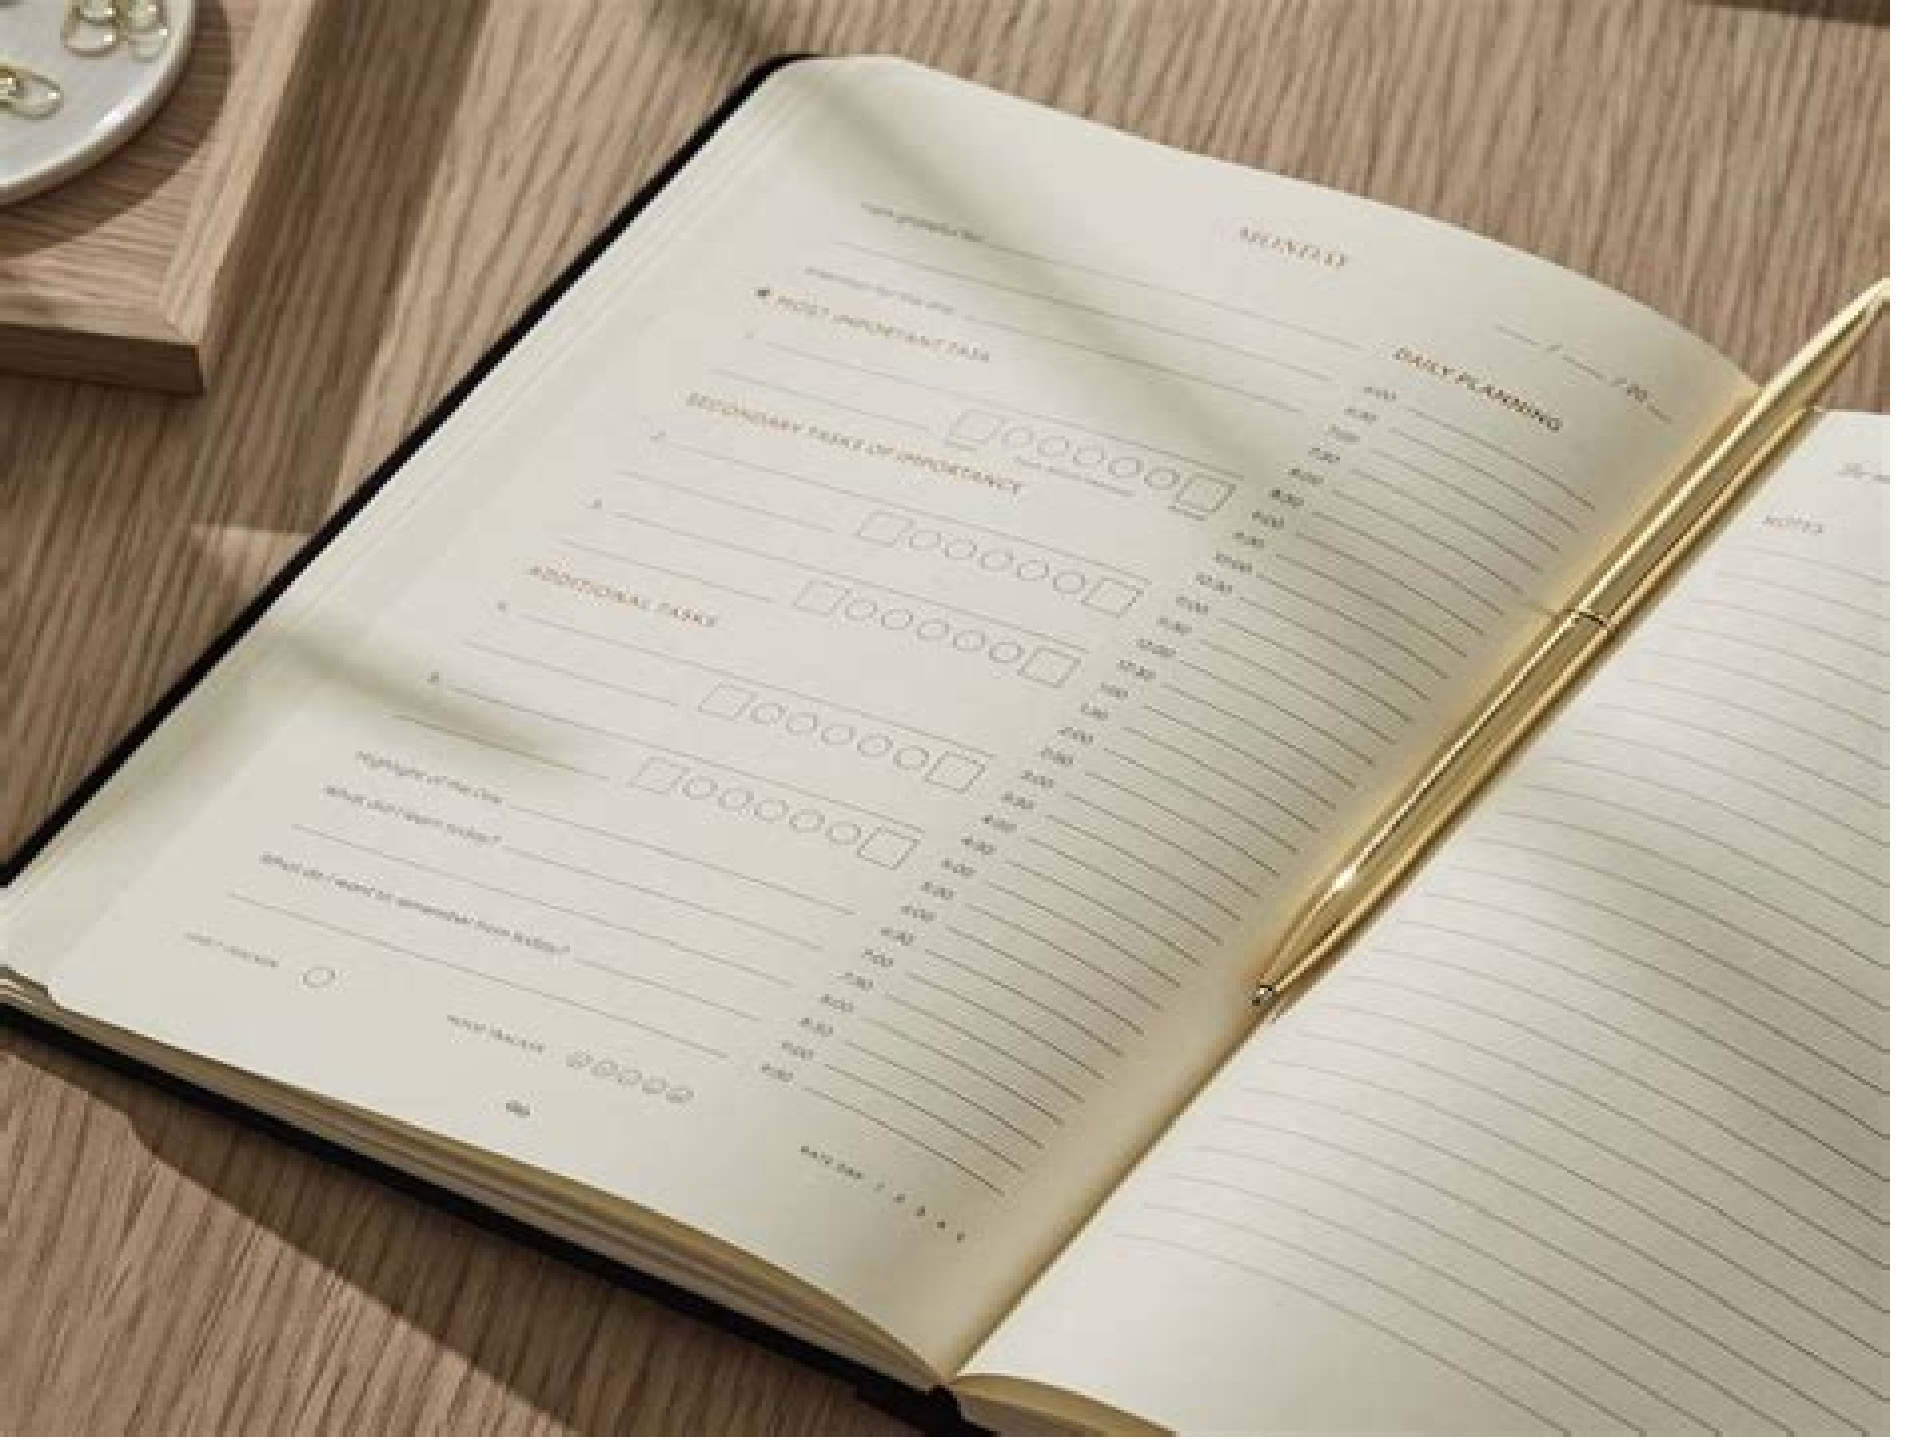 MONDAY
I am grateful for
/ / 20
MOST IMPORTANT TASK
1.
SECONDARY TASKS OF IMPORTANCE
2.
3.
ADDITIONAL TASKS
4.
5.
Highlight of the Day
What did I learn today?
What do I want to remember from today?
HABIT TRACKER
MOOD TRACKER
DAILY PLANNING
6:00
6:30
7:00
7:30
8:00
8:30
9:00
9:30
10:00
10:30
11:00
11:30
12:00
12:30
1:00
1:30
2:00
2:30
3:00
3:30
4:00
4:30
5:00
5:30
6:00
6:30
7:00
7:30
8:00
8:30
9:00
9:30
RATE DAY 1 2 3 4 5
NOTES